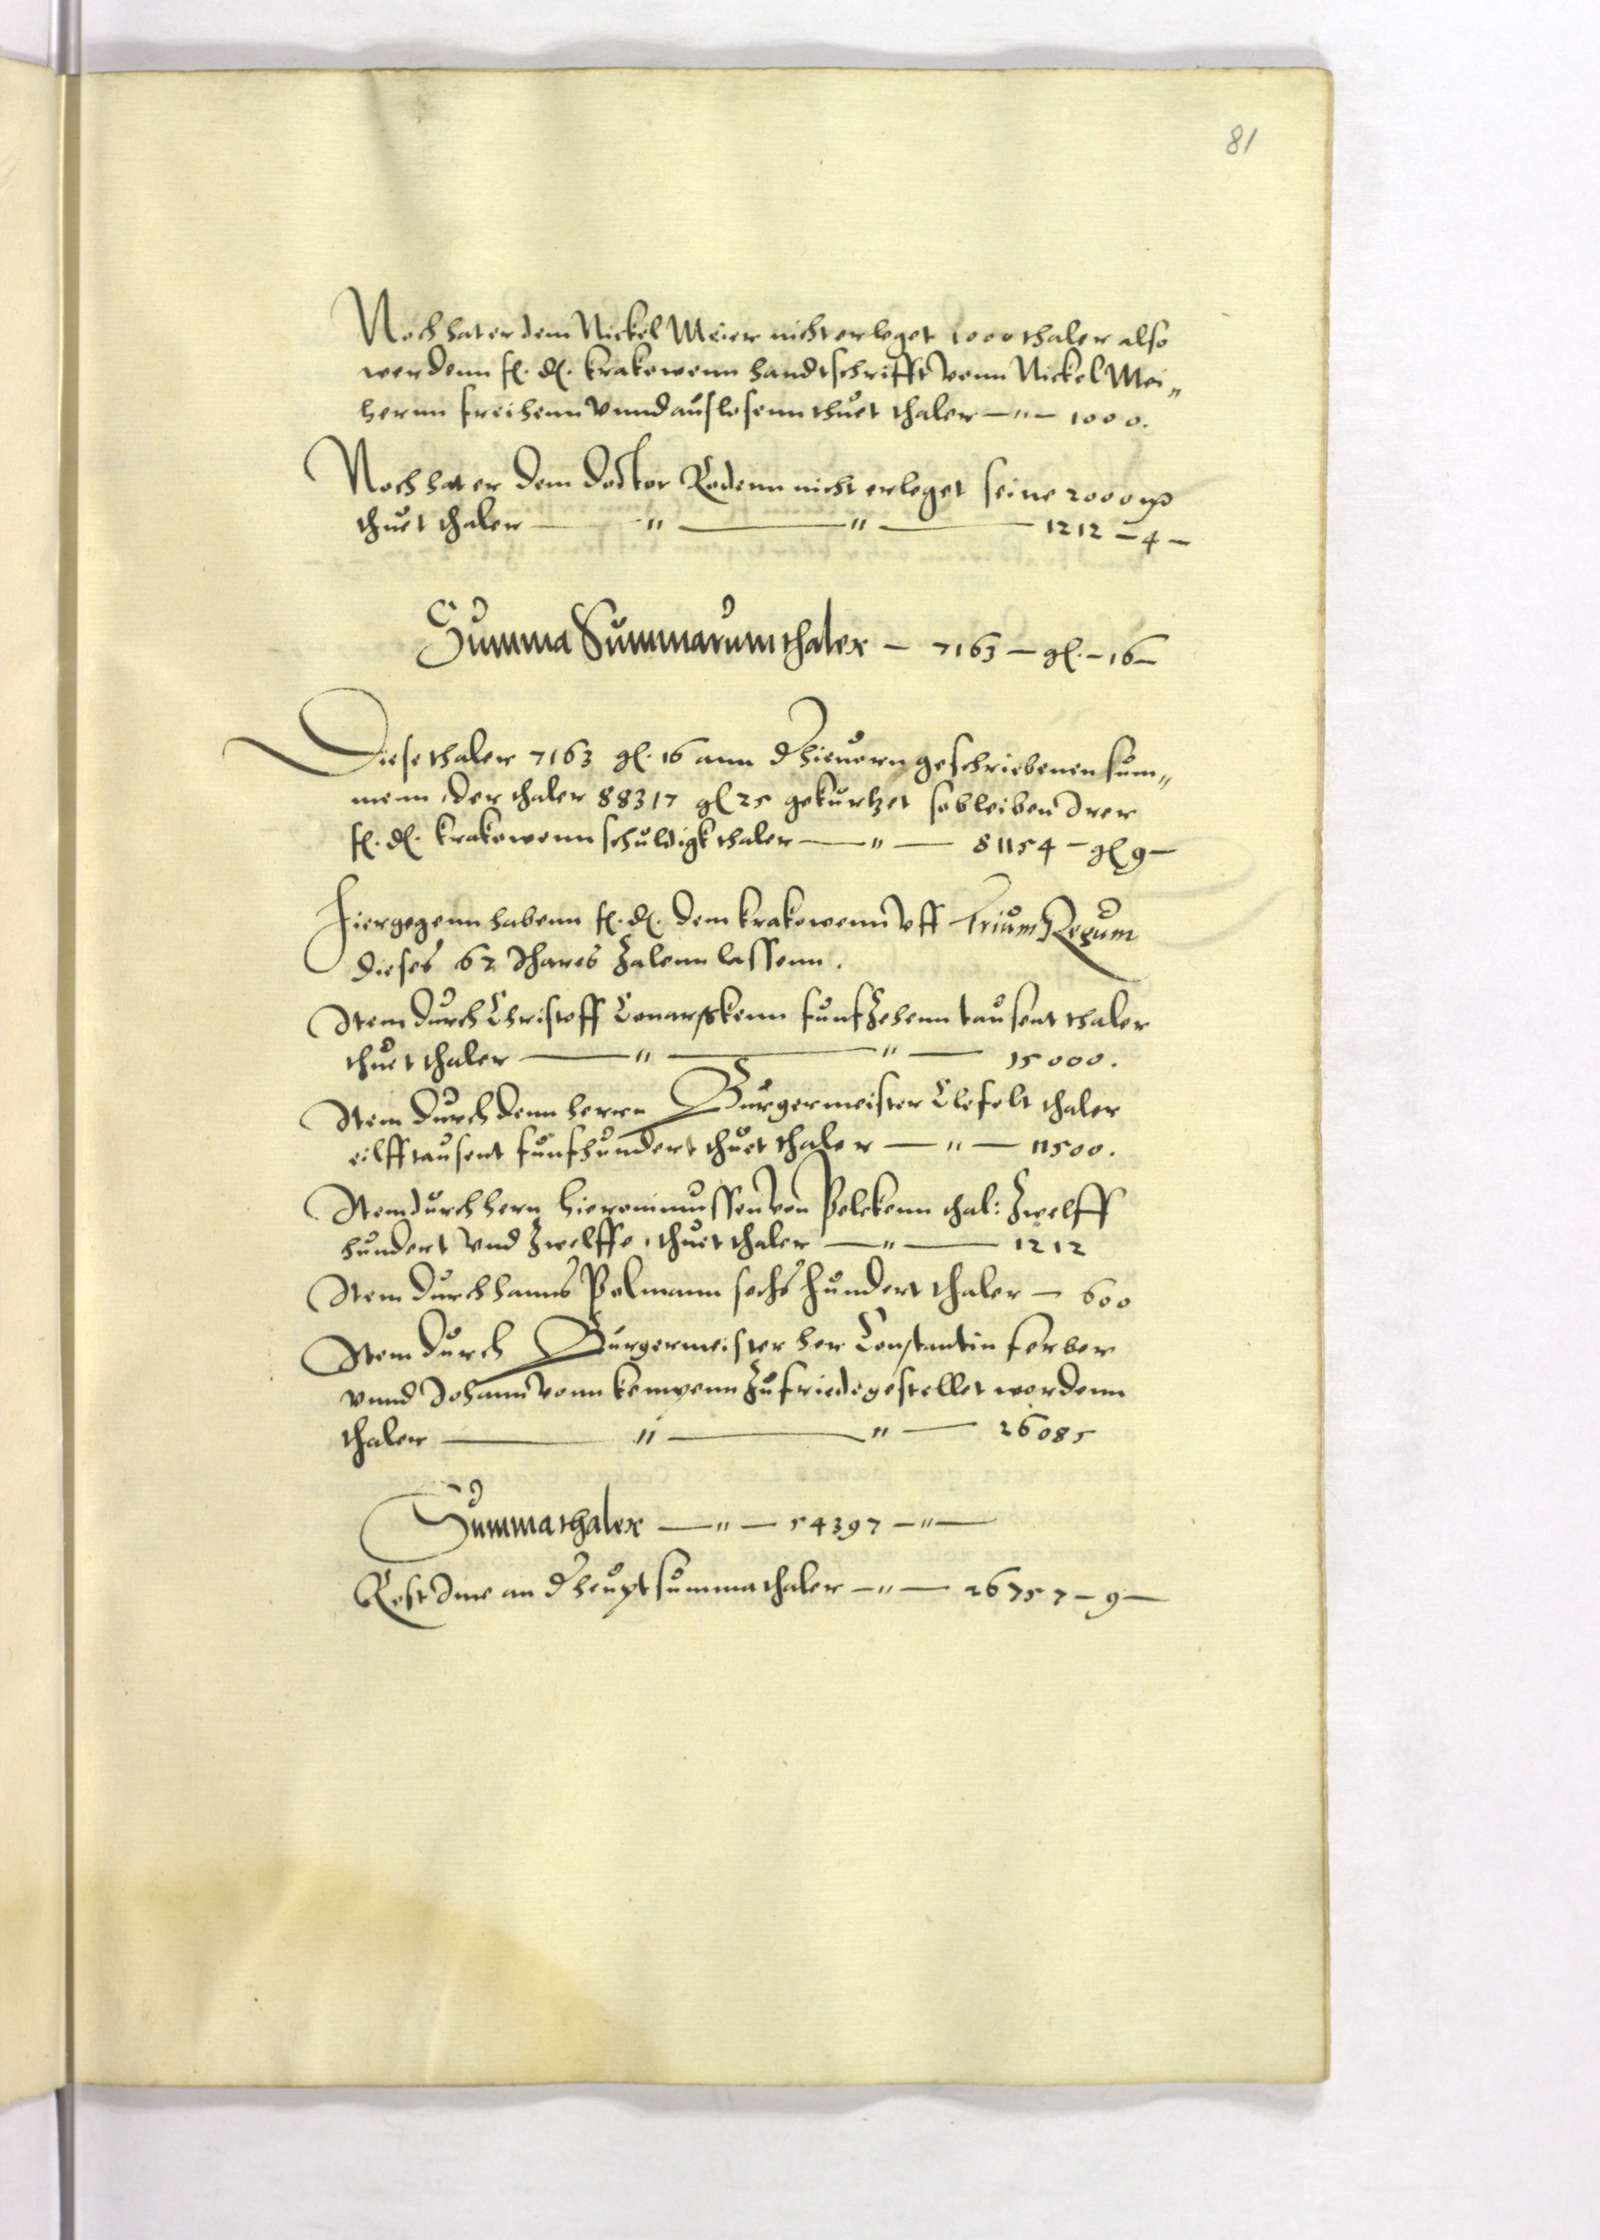 81
Noch hat er dem Nickel Meier nicht erleget 1000 thaler also
werdenn f. d. krakowenn handtschrifft vonn Nickel Mei„
hernn freihenn vnnd auslosenn thuet thaler — „ — 1000.
Noch hat er dem doctor Rodenn nicht erleget seine 2000 mg
thuet thaler — „ — „ — 1212 — 4 —
Summa Summarum thaler — 7163 — gl. — 16 —
Diese thaler 7163 gl. 16 ann dhieuorn geschriebenen sum„
menn der thaler 88317 gl 25 gekurtzet so bleiben
f. d. krakowenn schuldigk thaler — „ — 81154 — gl 9 —
Hiergegenn habenn f. d. dem krakowenn vff Trium Regum
dieses 62 Jhares Zalenn lassenn.
Item durch Christoff Conarskenn funfzehenn tausent thaler
thuet thaler — „ — „ — 15000.
Item durch denn herrn Burgermeister Clefelt thaler
eilfftausent funfhundert thuet thaler — „ — 11500.
Item durch hern hieronimussen von Pelckenn thal: Zwelff
hundert vnd Zwelffe, thuet thaler — „ — 1212
Item durch hanns Polmann sechs hundert thaler — 600
Item durch Burgermeister her Constantin ferber
vnnd Johann vonn kempenn Zufriede gestellet wordenn
thaler — „ — „ — 26085
Summa thaler — „ — 54397 — „ —
Rest Ime an dheuptsumma thaler — „ — 26757 — 9 —